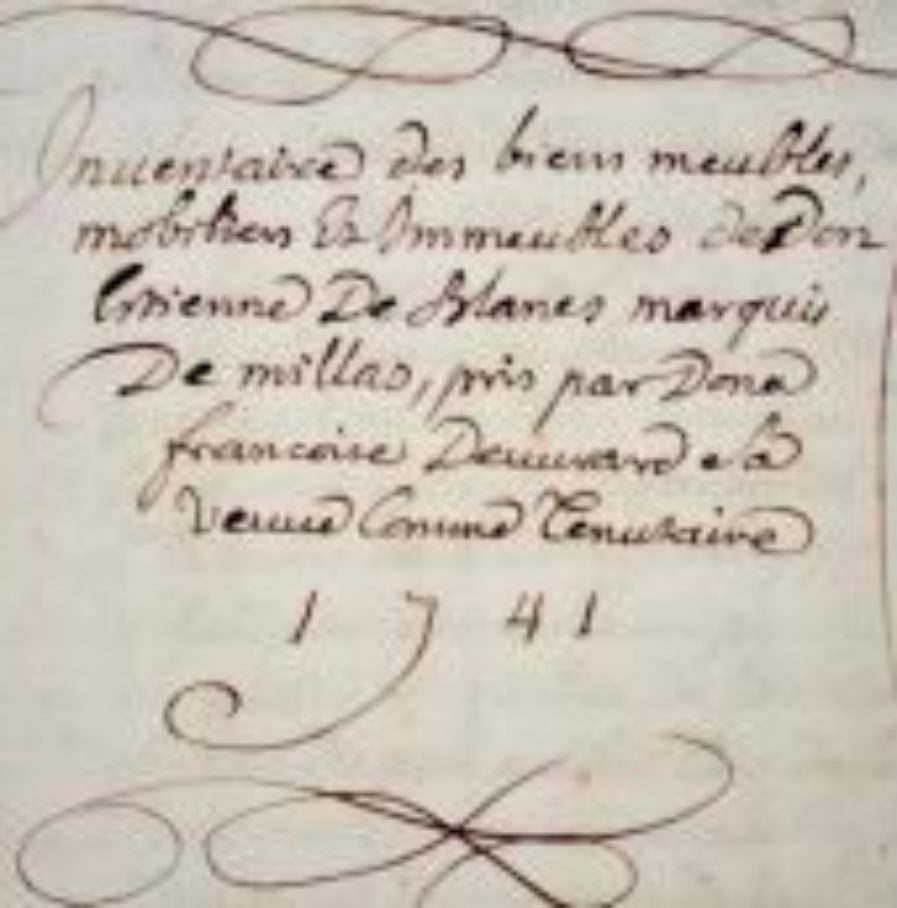 Inuentaire des biens meubles,
mobiliers Et Immeubles de Don
Estienne De Blanes marquis
De millas, pris par Dona
francoise
Veuue Comme Tenutaire
1741